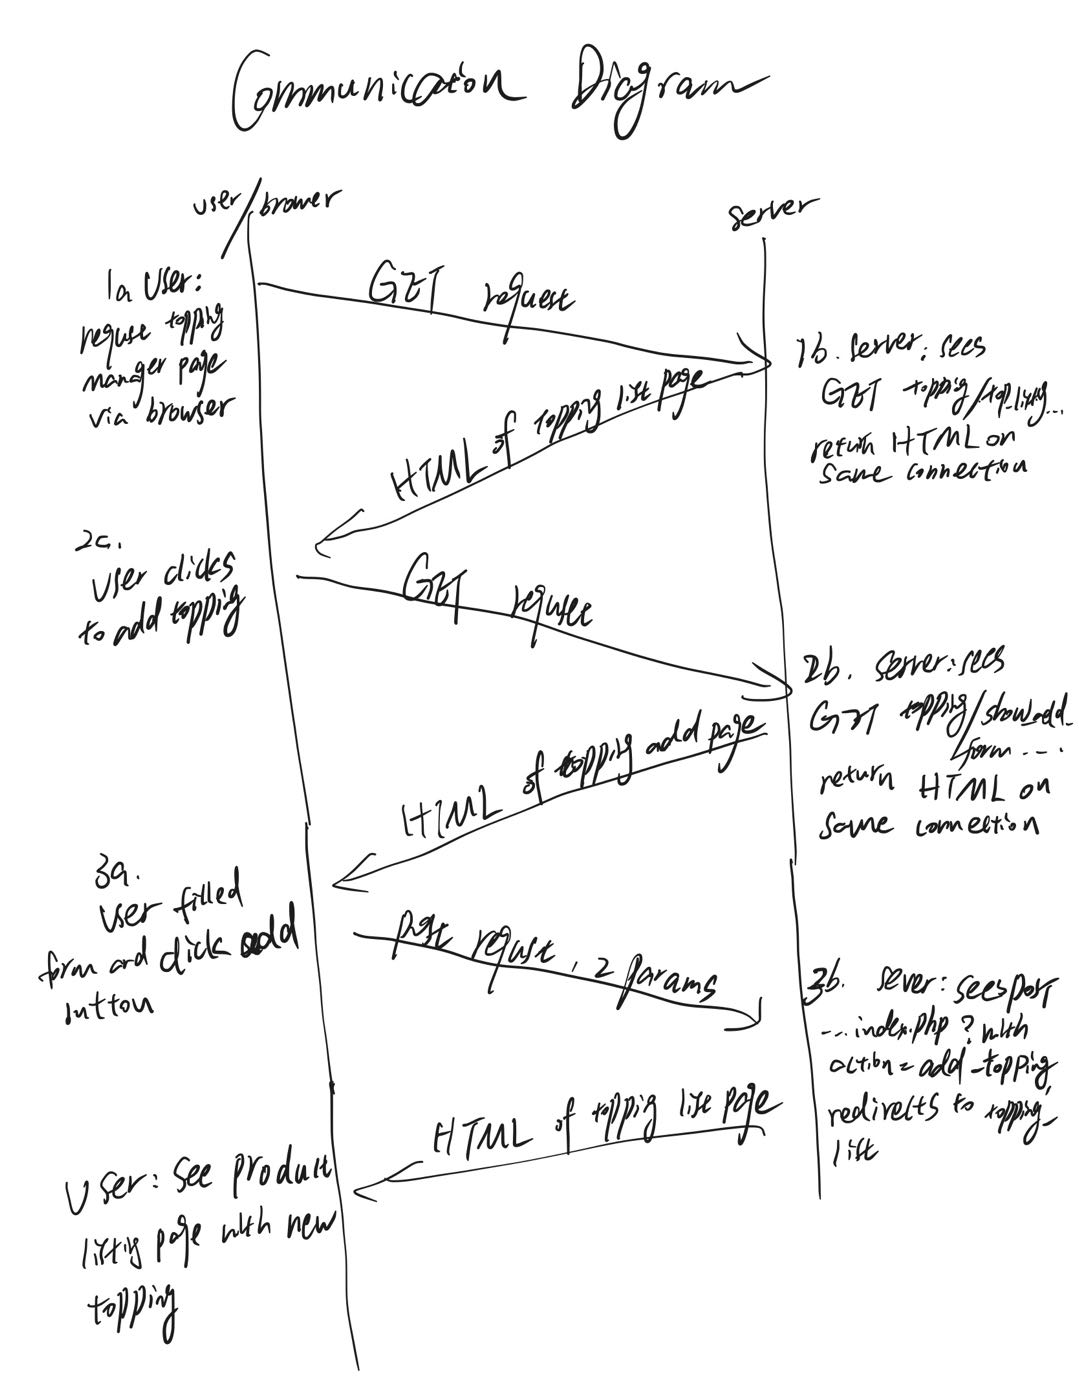 Communication Diagram
user/brower
server
1a User:
requse topping
manager page
via browser
GET request
1b. server: sees
GET topping/top_listing...
return HTML on
same connection
HTML of topping list page
2a.
User clicks
to add topping
GET requse
2b. server: sees
GET topping/show_add_
form ....
return HTML on
same connection
HTML of topping add page
3a.
User filled
form and click add
button
Post request, 2 params
3b. sever: sees post
...index.php? with
action = add_topping,
redirects to topping_
list
HTML of topping list page
User: see product
listing page with new
topping